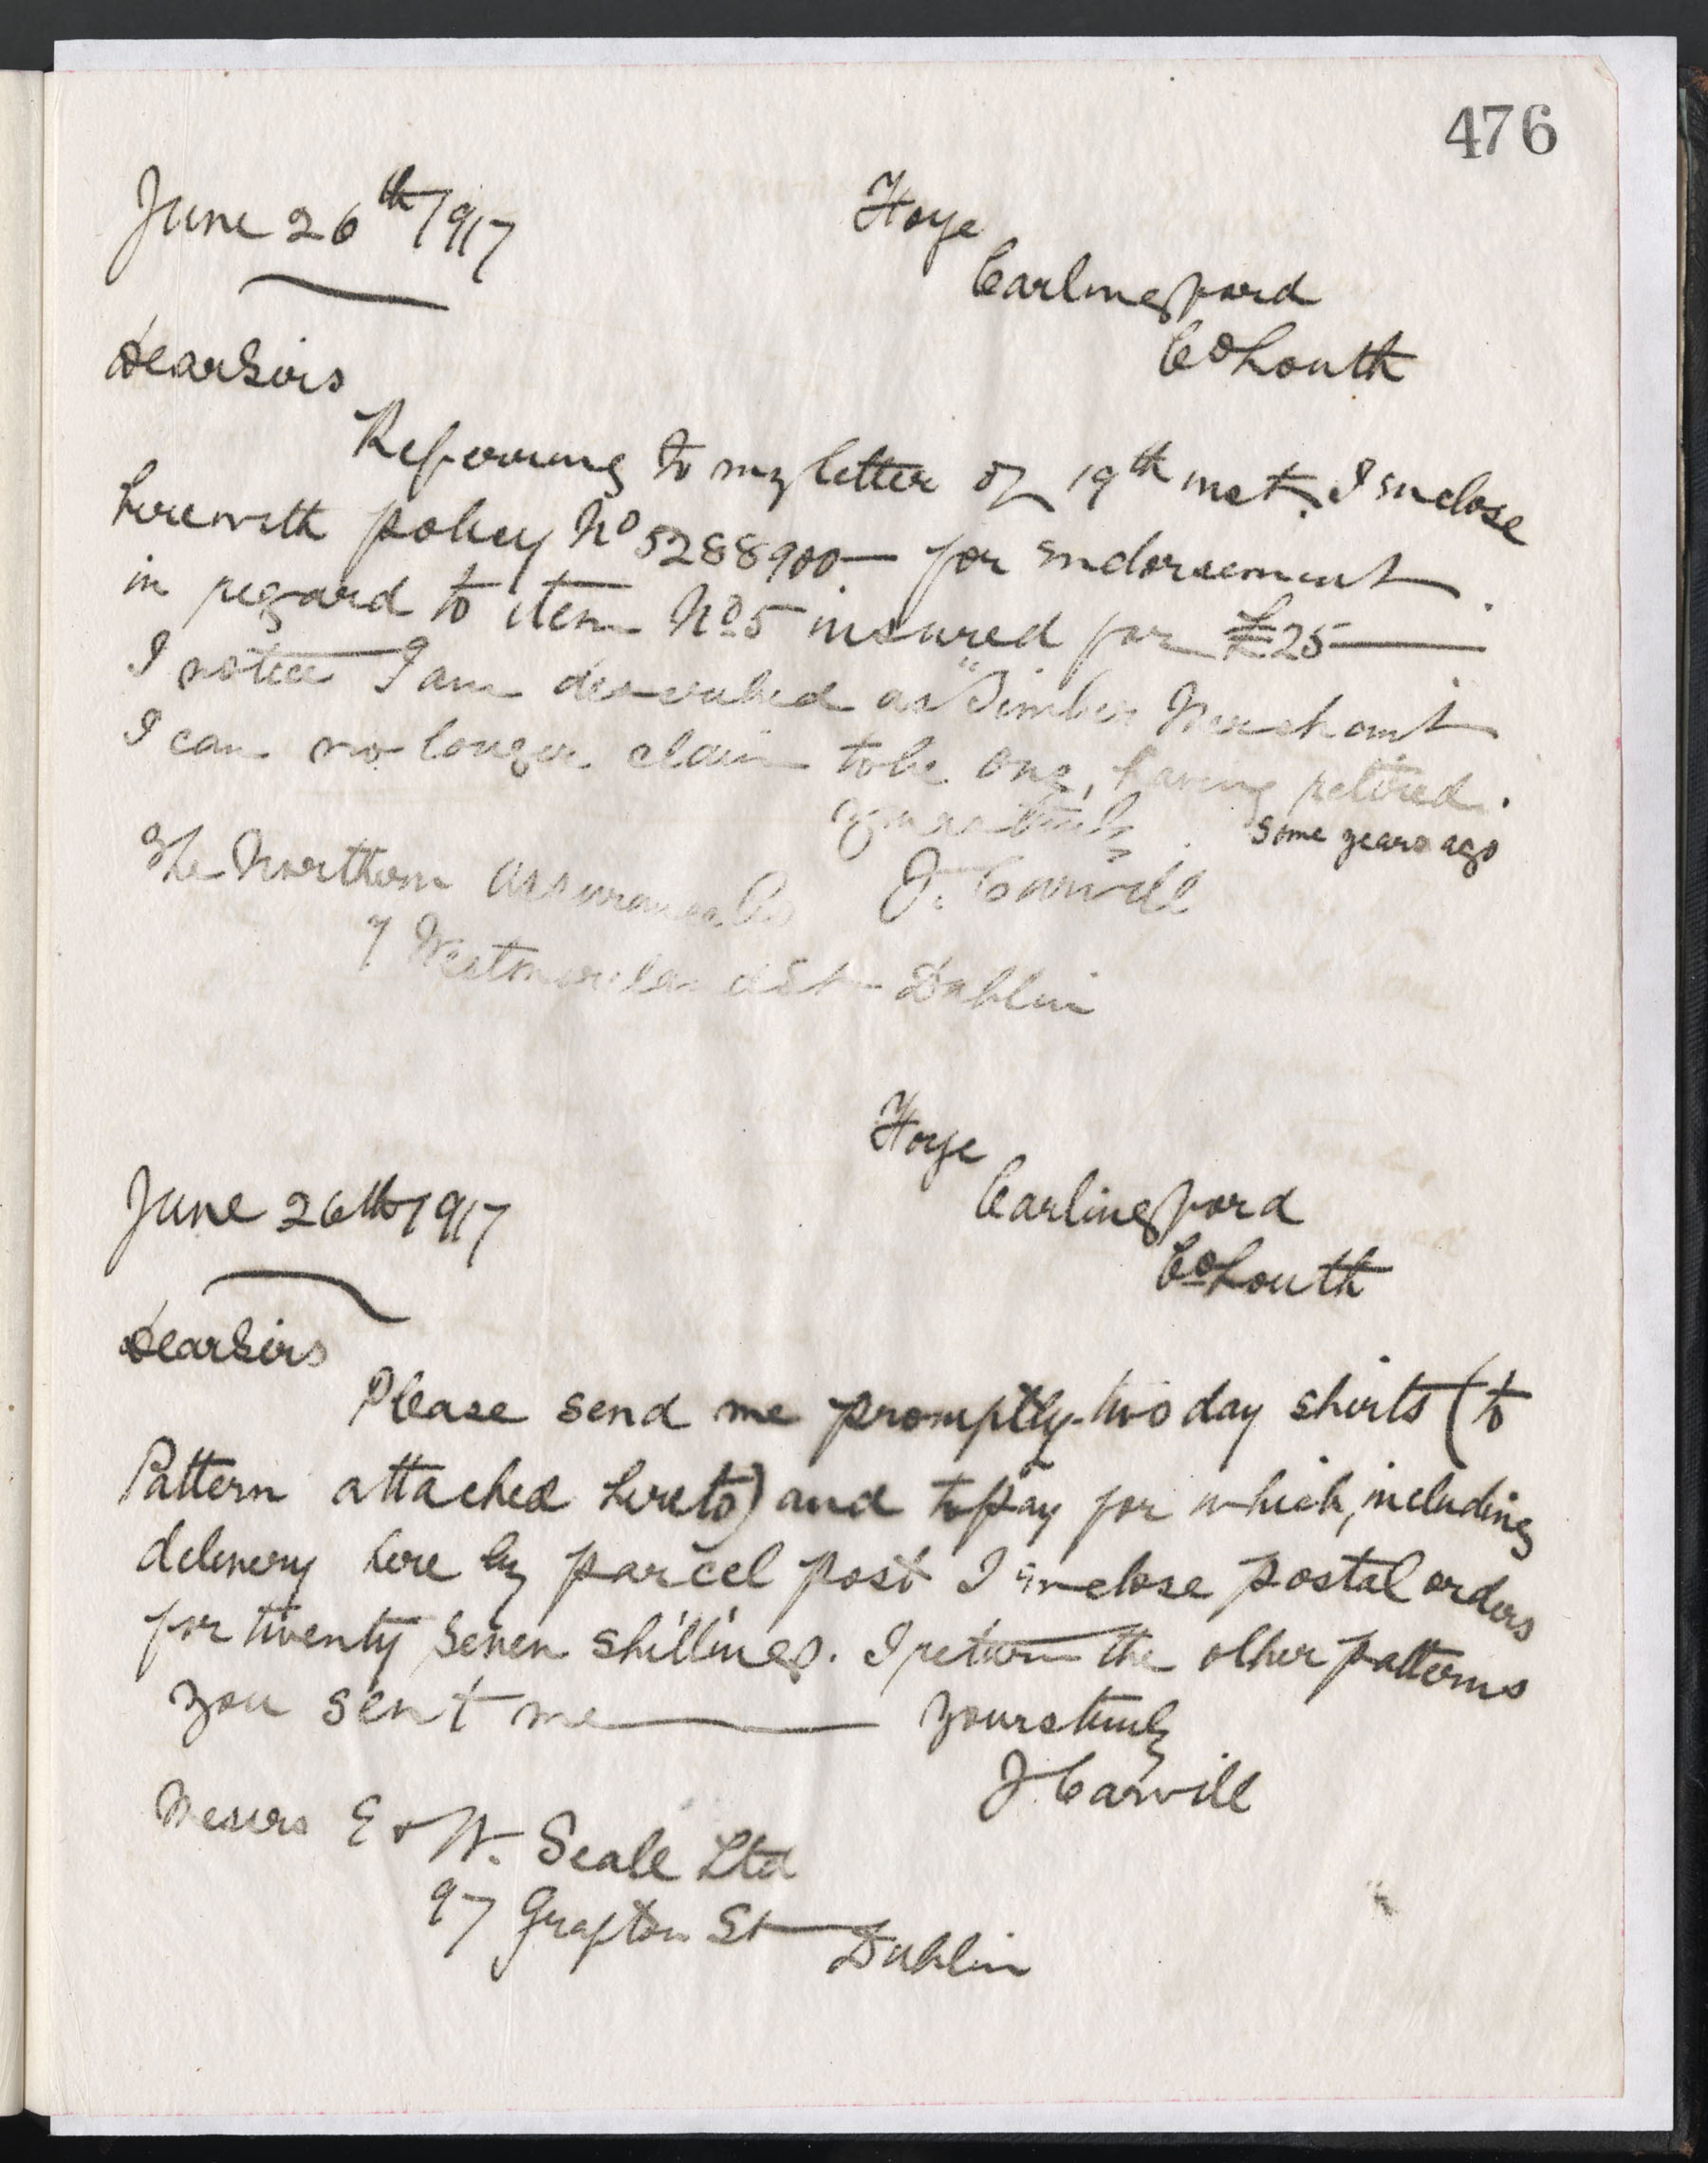 476
June 26th 1917
Hoye
Carlingford
Co Louth
Dear Sirs
Referring to my letter of 19th inst. I enclose
herewith policy No 5288900 — for endorsement.
in regard to item No 5 insured for £25 —
I notice I am described as "Timber Merchant
I can no longer claim to be one, having retired.
some years ago
Yours truly
J. Carvill
The Northern Assurance Co
7 Westmorland St — Dublin
Hoye
Carlingford
Co Louth
June 26th 1917
Dear Sirs
Please send me promptly two day shirts (to
Pattern attached hereto) and to pay for which, including
delivery here by parcel post I enclose postal orders
for twenty seven shillings. I return the other patterns
you sent me — Yours truly
J Carvill
Messrs E & W. Seale Ltd
97 Grafton St — Dublin